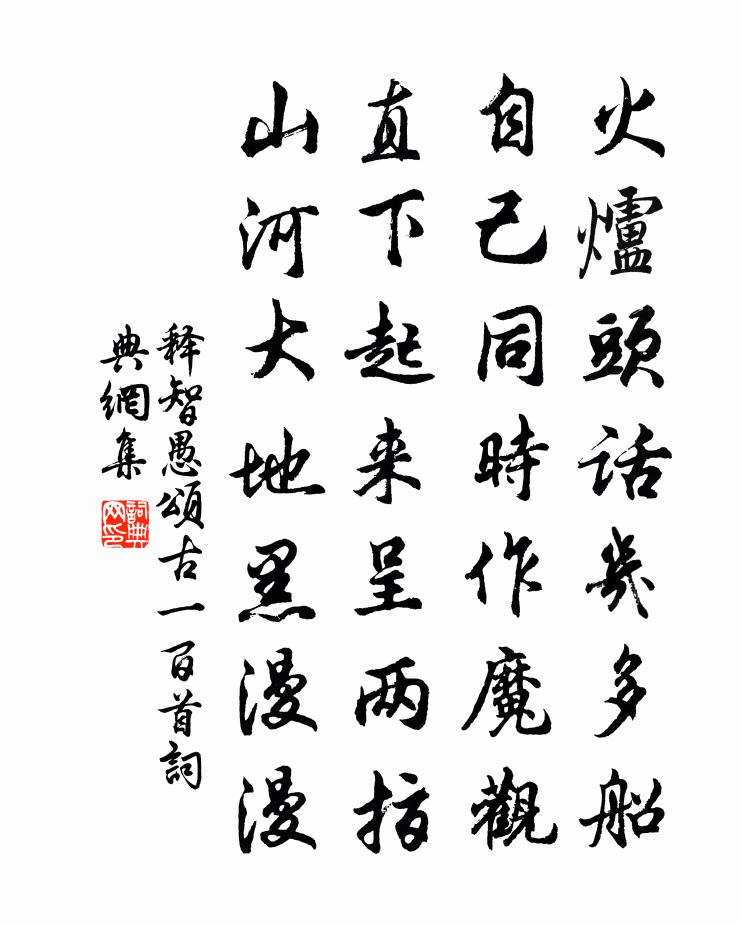 火爐頭話幾多船
自己同時作魔觀
直下起来呈两指
山河大地黑漫漫
释智愚頌古一百首詞
典網集
詞典
网印